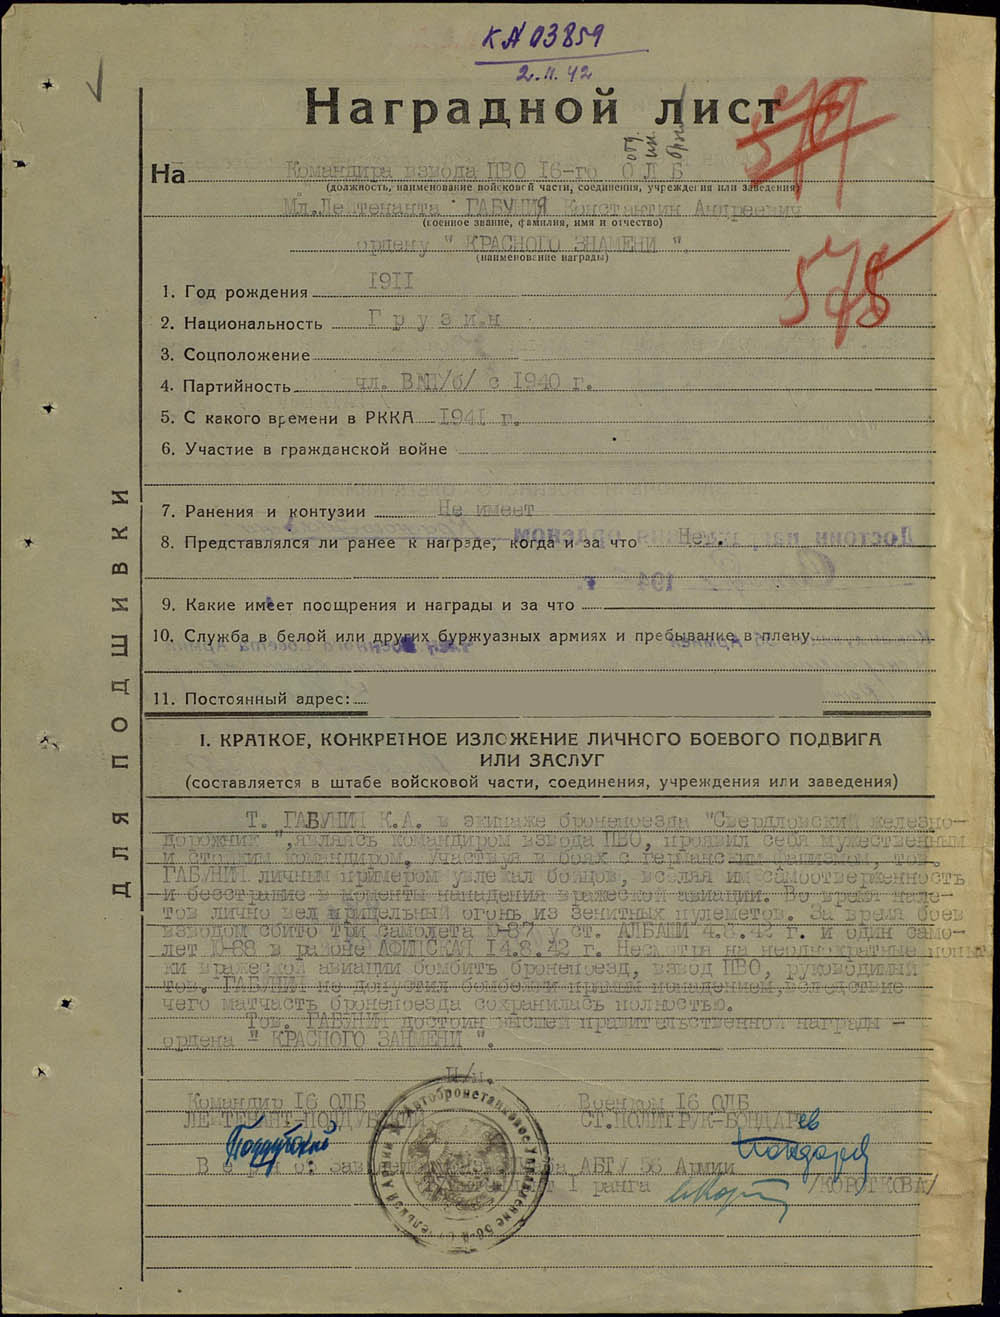 КА 03859
2.11.42
Наградной лист
576
отд. див. брн.
На Командира взвода ПВО 16-го О Л Б
(должность, наименование войсковой части, соединения, учреждения или заведения)
Мл.Лейтенанта ГАБУНИЯ Константин Андреевич
(военное звание, фамилия, имя и отчество)
ордену " КРАСНОГО ЗНАМЕНИ ".
(наименование награды)
575
1. Год рождения 1911
2. Национальность Грузин
3. Соцположение
4. Партийность чл. ВКП/б/ с 1940 г.
5. С какого времени в РККА 1941 г.
6. Участие в гражданской войне
7. Ранения и контузии Не имеет
8. Представлялся ли ранее к награде, когда и за что Нет.
9. Какие имеет поощрения и награды и за что
10. Служба в белой или других буржуазных армиях и пребывание в плену
11. Постоянный адрес:
ДЛЯ ПОДШИВКИ
I. КРАТКОЕ, КОНКРЕТНОЕ ИЗЛОЖЕНИЕ ЛИЧНОГО БОЕВОГО ПОДВИГА
ИЛИ ЗАСЛУГ
(составляется в штабе войсковой части, соединения, учреждения или заведения)
Т. ГАБУНИЯ К.А. в экипаже бронепоезда "Свердловский железно-
дорожник ",являясь командиром взвода ПВО, проявил себя мужественным
и стойким командиром. Участвуя в боях с германским фашизмом, тов.
ГАБУНИЯ личным примером увлекал бойцов, вселяя им самоотверженность
и бесстрашие в моменты нападения вражеской авиации. Во время нале-
тов лично вел прицельный огонь из зенитных пулеметов. За время боев
взводом сбито три самолета Ю-87 у ст. АЛБАШИ 4.8.42 г. и один само-
лет Ю-88 в районе АФИПСКАЯ 14.8.42 г. Несмотря на неоднократные попыт
ки вражеской авиации бомбить бронепоезд, взвод ПВО, руководимый
тов. ГАБУНИЯ не допустил бомбежки прямым попаданием,вследствие
чего матчасть бронепоезда сохранилась полностью.
Тов. ГАБУНИЯ достоин высшей правительственной награды -
ордена " КРАСНОГО ЗАНМЕНИ ".
П/п.
Командир 16 ОДБ Военком 16 ОДБ
ЛЕЙТЕНАНТ-ПОДДУБСКИЙ СТ.ПОЛИТРУК-БОНДАРЕВ
Верно: АБТУ 56 Армии
1 ранга /КОРОТКОВА/
Автобронетанковое управление 56-й отдельной Армии